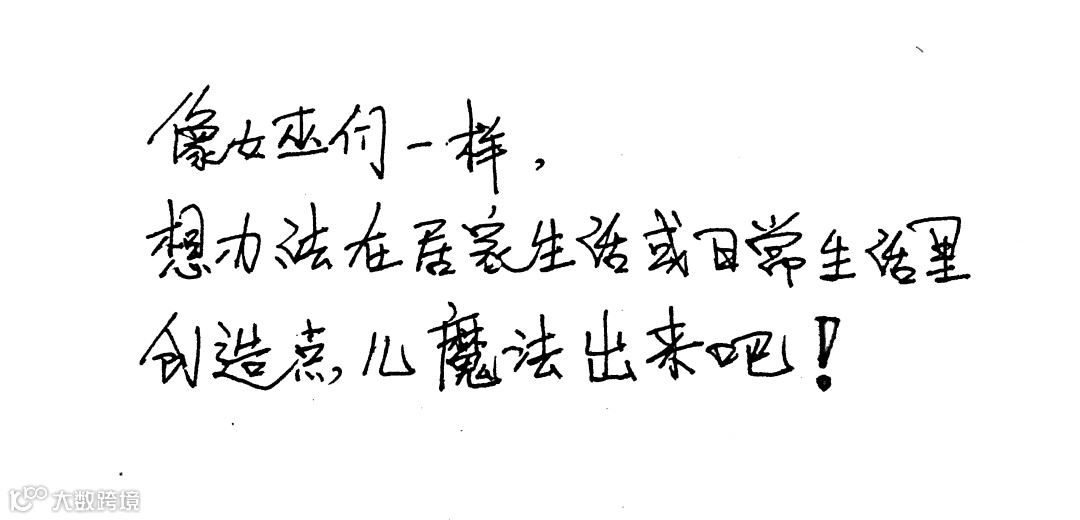 像女巫们一样，
想办法在居家生活或日常生活里
创造点儿魔法出来吧！
大数跨境